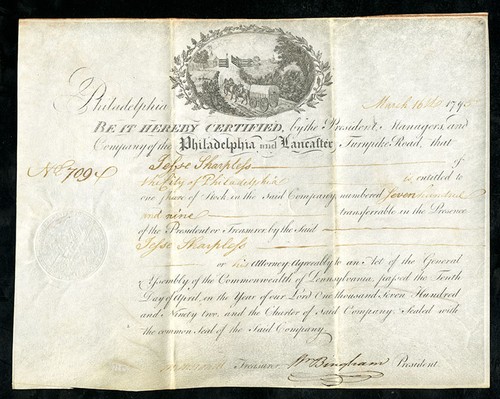 Philadelphia March 16th 1795
BE IT HEREBY CERTIFIED, by the President, Managers, and
Company of the Philadelphia and Lancaster Turnpike Road, That
No. 709 Jesse Sharpless of
the City of Philadelphia is entitled to
one share of Stock in the Said Company, numbered Seven hundred
and nine transferrable in the Presence
of the President or Treasurer by the Said
Jesse Sharpless
or his Attorney, Agreeably to an Act of the General
Assembly of the Commonwealth of Pennsylvania, passed the Tenth
Day of April, in the Year of our Lord One thousand Seven Hundred
and Ninety two, and the Charter of Said Company, Sealed with
the common Seal of the Said Company.
Treasurer. Wm Bingham President.